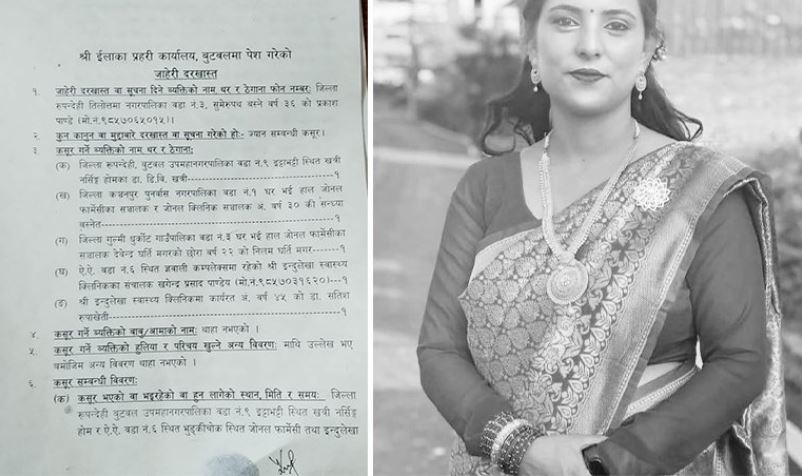 श्री ईलाका प्रहरी कार्यालय, बुटवलमा पेश गरेको
जाहेरी दरखास्त
१. जाहेरी दरखास्त वा सूचना दिने व्यक्तिको नाम, थर र ठेगाना फोन नम्बरः जिल्ला
रुपन्देही तिलोत्तमा नगरपालिका वडा नं.३, सुमेरुपथ बस्ने वर्ष ३६ को प्रकाश
पाण्डे (मो.नं.९८५७०६५०१५)।
२. कुन कानुन वा मुद्दाबारे दरखास्त वा सूचना गरेको होः- ज्यान सम्बन्धी कसूर।
३. कसूर गर्ने व्यक्तिको नाम, थर र ठेगानाः
(क) जिल्ला रूपन्देही, बुटवल उपमहानगरपालिका वडा नं.९ इट्टाभट्टी स्थित खत्री
नर्सिङ्ग होमका डा. डि.बि. खत्री-----------------------------------१
(ख) जिल्ला कञ्चनपुर पुनर्वास नगरपालिका वडा नं.१ घर भई हाल जोनल
फार्मेसीका सञ्चालक र जोनल क्लिनिक सञ्चालक अं. वर्ष ३० की सन्ध्या
वस्नेत-----------------------------------------------१
(ग) जिल्ला गुल्मी धुर्कोट गाउँपालिका वडा नं.३ घर भई हाल जोनल फार्मेसीका
सञ्चालक देवेन्द्र घर्ति मगरको छोरा वर्ष २२ को निलम घर्ति मगर-------१
(घ) ऐ.ऐ. वडा नं.६ स्थित ज्ञवाली कम्प्लेक्समा रहेको श्री इन्दुलेखा स्वास्थ्य
क्लिनिकका संचालक खगेन्द्र प्रसाद पाण्डेय (मो.नं.९८५७०३१६२०)---१
(ङ) श्री इन्दुलेखा स्वास्थ्य क्लिनिकमा कार्यरत अं. वर्ष ४५ को डा. सतिश
रुपाखेती---------------------------------------------१
४. कसूर गर्ने व्यक्तिको बाबु/आमाको नामः थाहा नभएको ।
५. कसूर गर्ने व्यक्तिको हुलिया र परिचय खुल्ने अन्य विवरणः माथि उल्लेख भए
बमोजिम अन्य विवरण थाहा नभएको ।
६. कसूर सम्बन्धी विवरणः
(क) कसूर भएको वा भइरहेको वा हुन लागेको स्थान, मिति र समयः जिल्ला
रुपन्देही बुटवल उपमहानगरपालिका वडा नं.९ इट्टाभट्टी स्थित खत्री नर्सिङ्ग
होम र ऐ.ऐ. वडा नं.६ स्थित भुद्कीचोक स्थित जोनल फार्मेसी तथा इन्दुलेखा